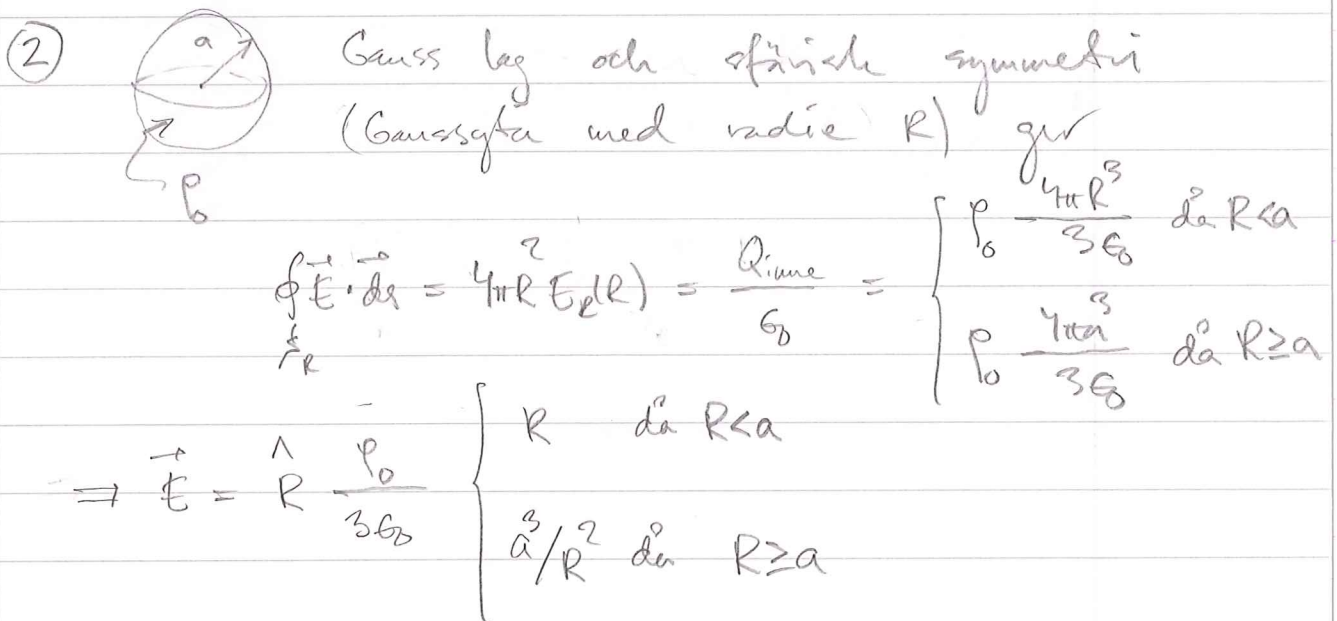 ② a Gauss lag och sfärisk symmetri
(Gaussyta med radie R) ger
ρ₀
∮_{S_R} E⃗ · ds⃗ = 4πR² E_R(R) = Q_inne / ε₀ = { ρ₀ 4πR³ / 3ε₀ då R<a
ρ₀ 4πa³ / 3ε₀ då R≥a
⇒ E⃗ = R̂ ρ₀ / 3ε₀ { R då R<a
a³/R² då R≥a